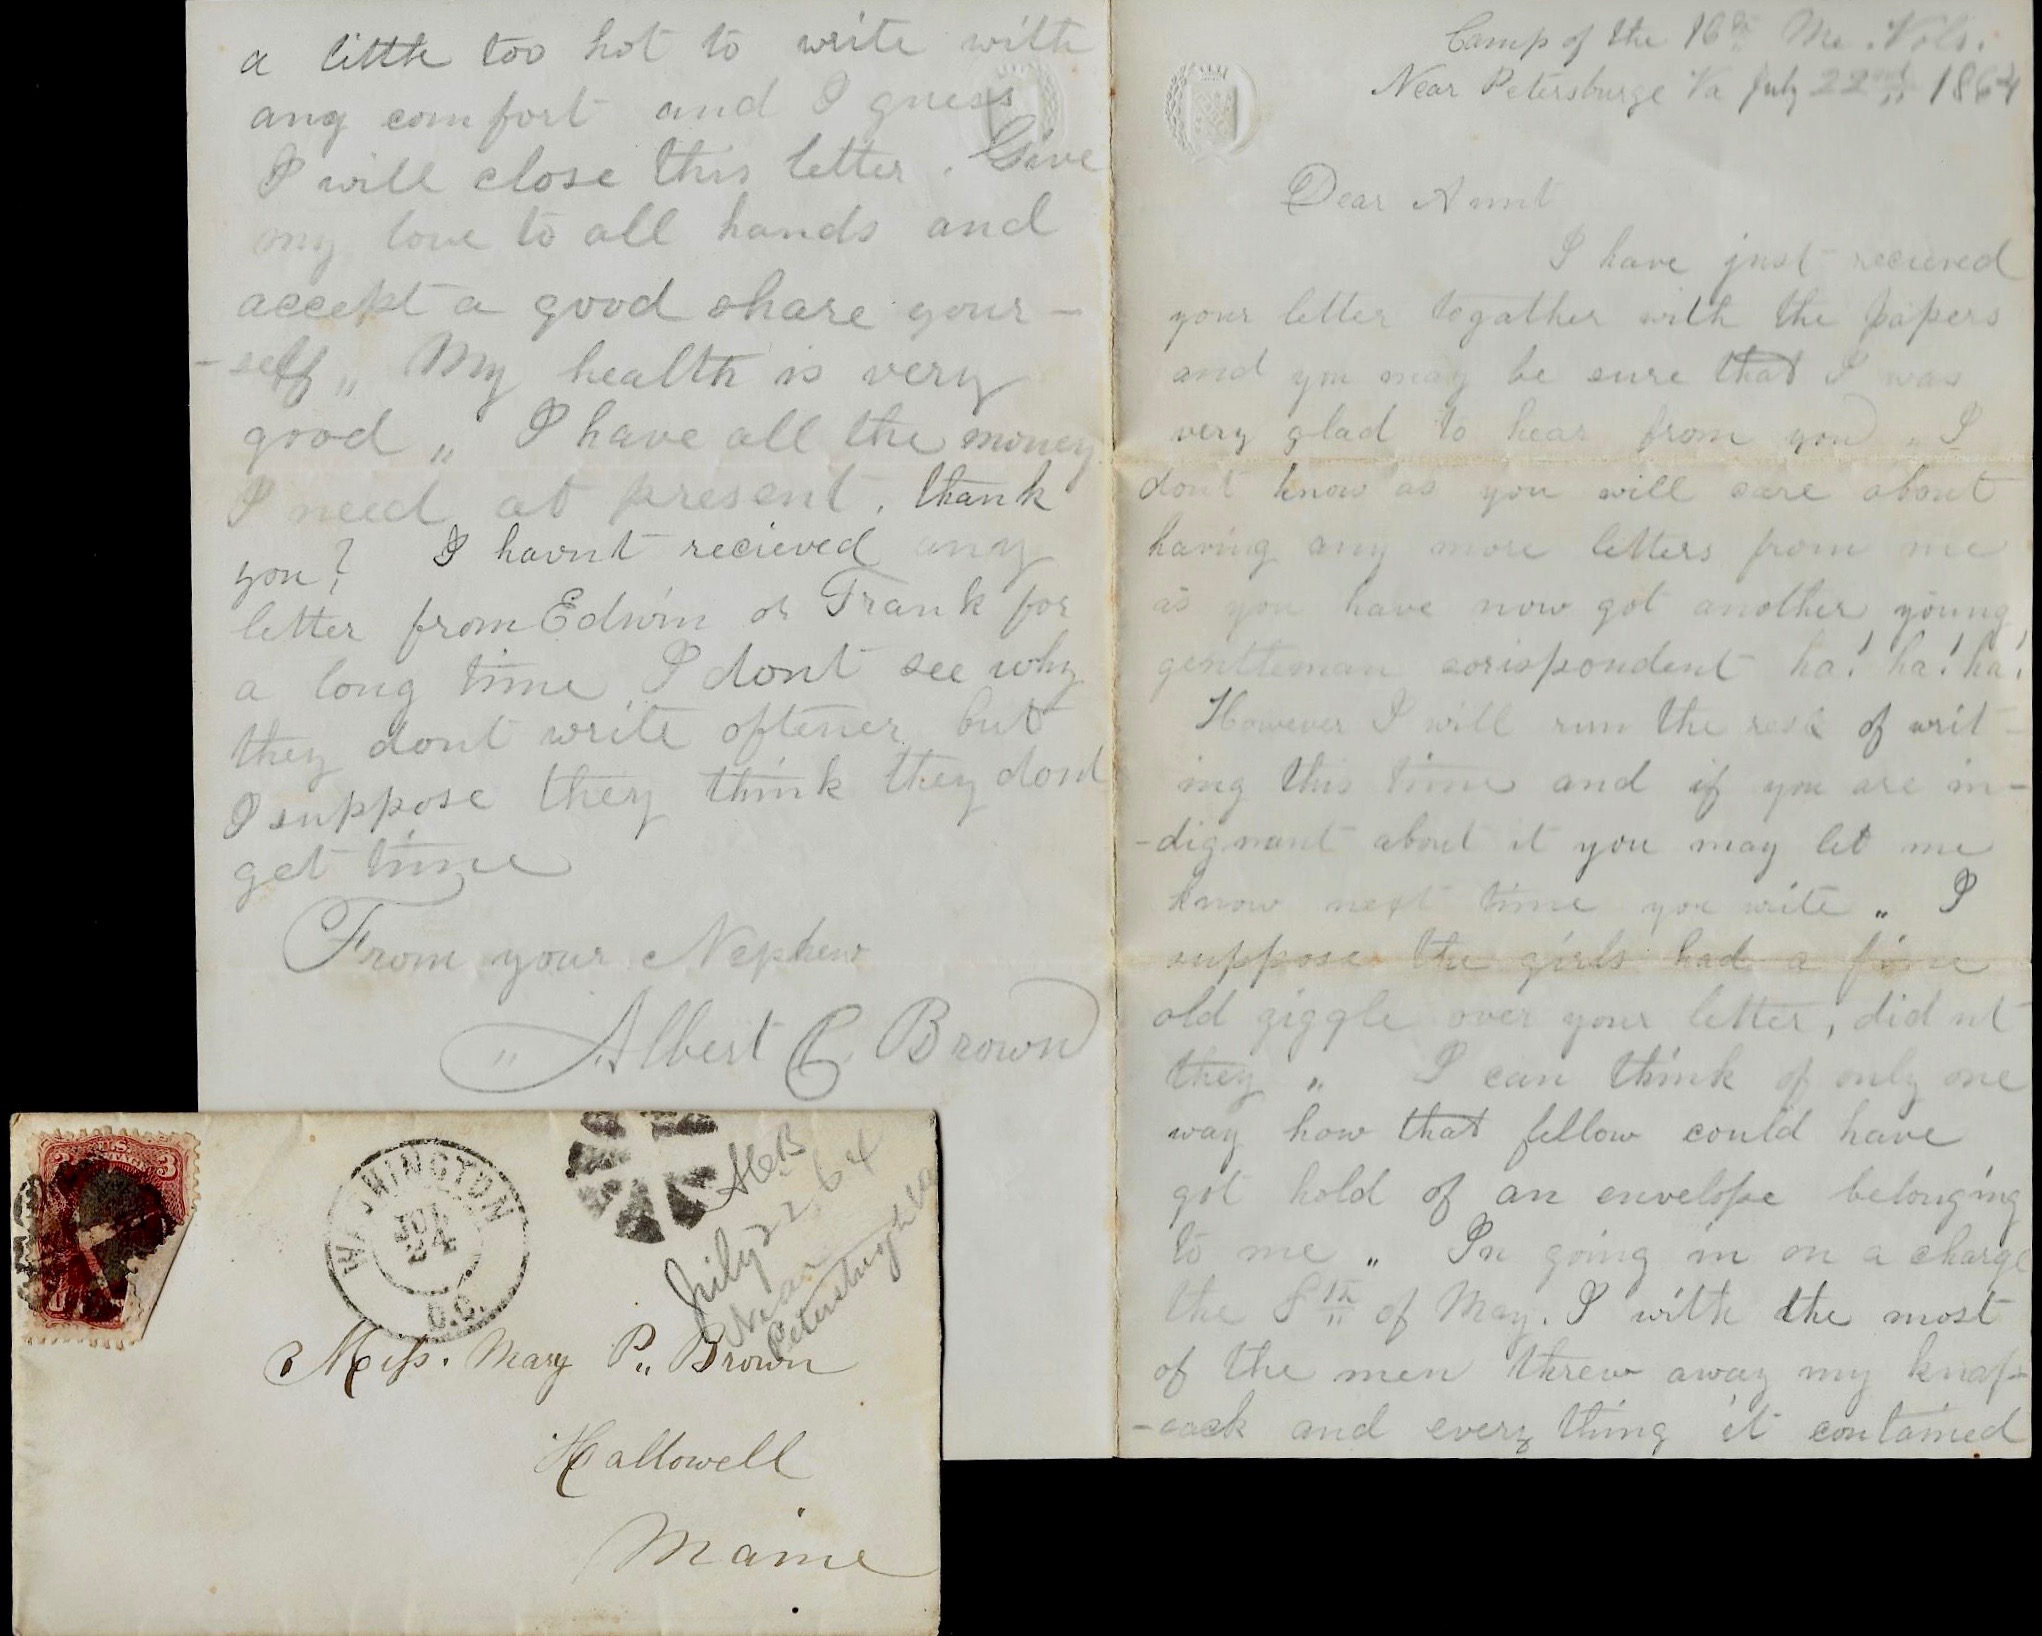 Camp of the 16th Me. Vols.
Near Petersburge Va July 22nd 1864
Dear Aunt
I have just recieved
your letter togather with the papers
and you may be sure that I was
very glad to hear from you „ I
dont know as you will care about
having any more letters from me
as you have now got another young
gentleman corispondent ha! ha! ha!
However I will run the resk of writ-
ing this time and if you are in-
-dignant about it you may let me
know next time you write „ I
suppose the girls had a fine
old giggle over your letter, did nt
they „ I can think of only one
way how that fellow could have
got hold of an envelope belonging
to me „ In going in on a charge
the 8th of May. I with the most
of the men threw away my knap-
-sack and every thing it contained
a little too hot to write with
any comfort and I guess
I will close this letter. Give
my love to all hands and
accept a good share your-
-self „ My health is very
good „ I have all the money
I need at present, thank
you? I havnt recieved any
letter from Edwin or Frank for
a long time I dont see why
they dont write oftener but
I suppose they think they dont
get time
From your Nephew
„ Albert C. Brown
U.S.
3
WASHINGTON
JUL
24
D.C.
ACB
July 22, 64
Near
Petersburgh Va
Miss. Mary P„ Brown
Hallowell
Maine